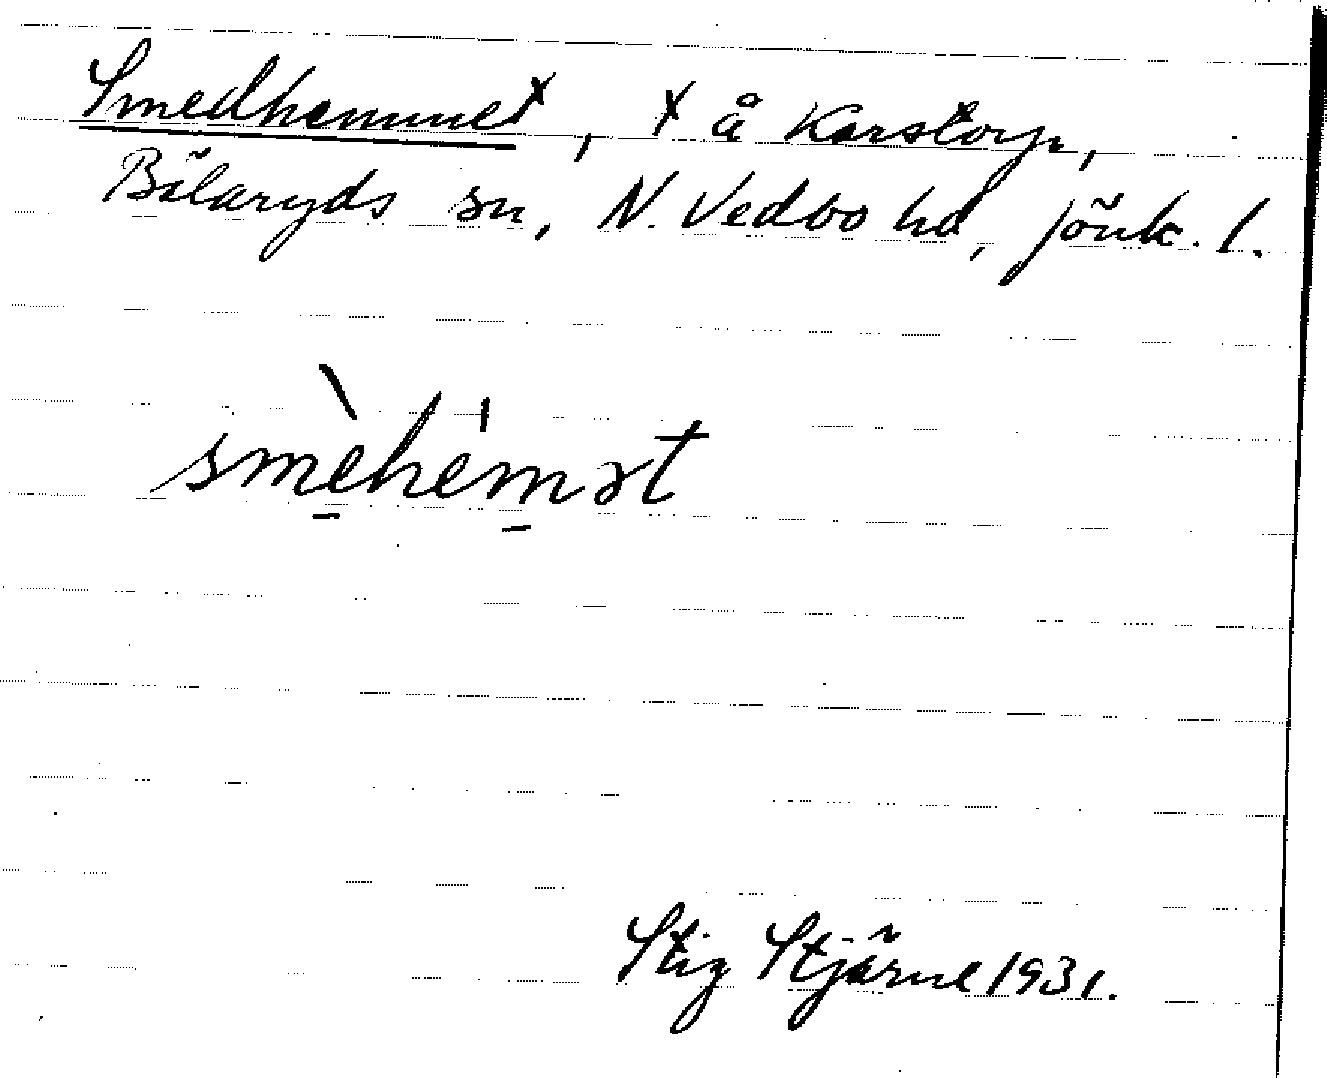 Smedhemmet x, x å Karstorp,
Bälaryds sn, N. Vedbo hd, Jönk. l.
smèhemət
Stig Stjärne 1931.